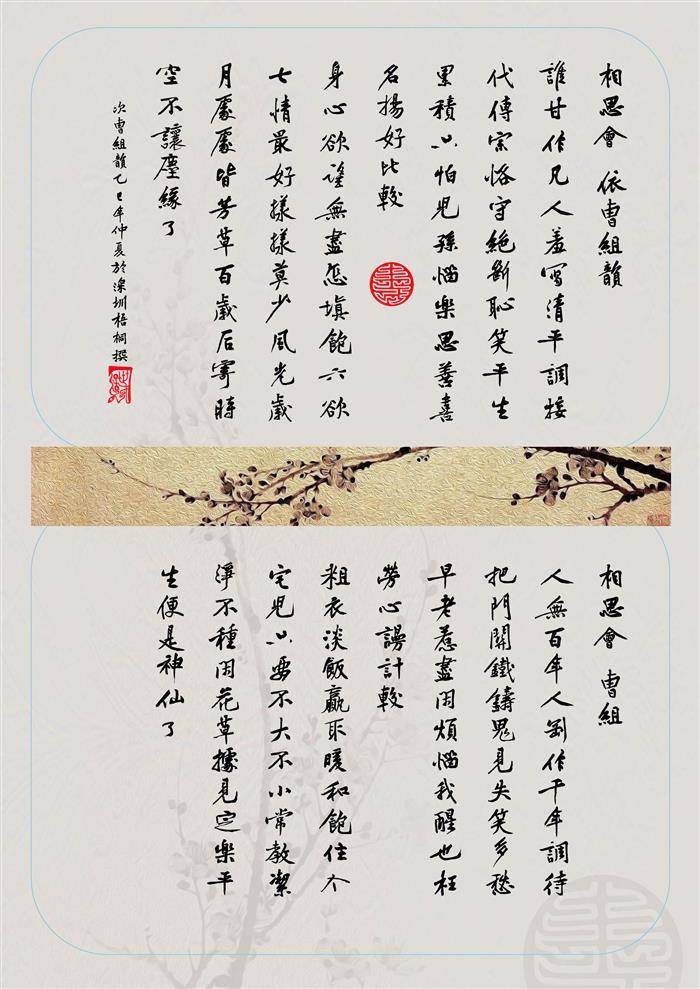 相思會 依曹組韻
誰甘作凡人羞寫清平調接
代傳宗恪守絕斷恥笑平生
累積只怕兒孫惱樂思善喜
名揚好比較
身心欲望無盡怎填飽六欲
七情最好樣樣莫少風光歲
月處處皆芳草百歲后寄時
空不讓塵緣了
次曹組韻乙巳年仲夏於深圳梧桐撰
相思會 曹組
人無百年人剛作千年調待
把門關鐵鑄鬼見失笑多愁
早老惹盡閒煩惱我醒也枉
勞心謾計較
粗衣淡飯贏取暖和飽住个
宅兒只要不大不小常教潔
淨不種閒花草據見定樂平
生便是神仙了